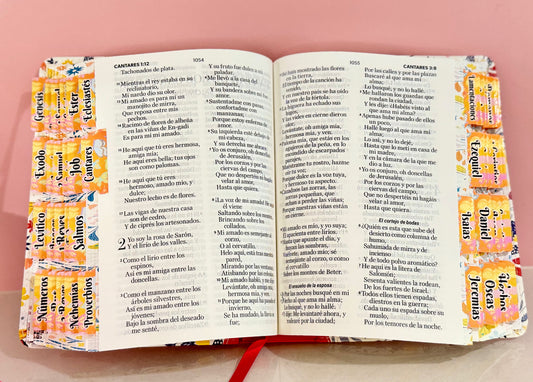 Génesis
Éxodo
Levítico
Números
Samuel
Reyes
Nehemías
Ester
Job
Salmos
Proverbios
Eclesiastés
Cantares
CANTARES 1:12
1054
Tachonados de plata.
Mientras el rey estaba en su
reclinatorio,
Mi nardo dio su olor.
Mi amado es para mí un
manojito de mirra,
Que reposa entre mis
pechos.
Racimo de flores de alheña
en las viñas de En-gadi
Es para mí mi amado.
He aquí que tú eres hermosa,
amiga mía;
He aquí eres bella; tus ojos
son como palomas.
He aquí que tú eres
hermoso, amado mío, y
dulce;
Nuestro lecho es de flores.
Las vigas de nuestra casa
son de cedro,
Y de ciprés los artesonados.
2 Yo soy la rosa de Sarón,
Y el lirio de los valles.
Como el lirio entre los
espinos,
Así es mi amiga entre las
doncellas.
Como el manzano entre los
árboles silvestres,
Así es mi amado entre los
jóvenes;
Bajo la sombra del deseado
me senté,
Y su fruto fue dulce a mi
paladar.
Me llevó a la casa del
banquete,
Y su bandera sobre mí fue
amor.
Sustentadme con pasas,
confortadme con
manzanas;
Porque estoy enferma de
amor.
Su izquierda esté debajo de
mi cabeza,
Y su derecha me abrace.
Yo os conjuro, oh doncellas
de Jerusalén,
Por los corzos y por las
ciervas del campo,
Que no despertéis ni hagáis
velar al amor,
Hasta que quiera.
¡La voz de mi amado! He aquí
él viene
Saltando sobre los montes,
Brincando sobre los
collados.
Mi amado es semejante al
corzo,
O al cervatillo.
Helo aquí, está tras nuestra
pared,
Mirando por las ventanas,
Atisbando por las celosías.
Mi amado habló, y me dijo:
Levántate, oh amiga mía,
hermosa mía, y ven.
Porque he aquí ha pasado el
invierno,
Se ha mudado, la lluvia se
fue;
1055
CANTARES 3:8
han mostrado las flores
en la tierra,
El tiempo de la canción ha
venido,
Y en nuestro país se ha oído
la voz de la tórtola.
La higuera ha echado sus
higos,
Y las vides en cierne dieron
olor;
Levántate, oh amiga mía,
hermosa mía, y ven.
Paloma mía, que estás en los
agujeros de la peña, en lo
escondido de escarpados
parajes,
Muéstrame tu rostro, hazme
oír tu voz;
Porque dulce es la voz tuya,
y hermoso tu aspecto.
Cazadnos las zorras, las
zorras pequeñas,
que echan a perder las viñas;
Porque nuestras viñas están
en cierne.
Mi amado es mío, y yo suya;
Él apacienta entre lirios.
Hasta que apunte el día, y
huyan las sombras,
Vuélvete, amado mío; sé
semejante al corzo, o como
el cervatillo
Sobre los montes de Beter.
El ensueño de la esposa
Por las noches busqué en mi
lecho al que ama mi alma;
Lo busqué, y no lo hallé.
Y dije: Me levantaré ahora, y
rodearé por la ciudad;
Por las calles y por las plazas
Buscaré al que ama mi
alma;
Lo busqué, y no lo hallé.
Me hallaron los guardas que
rondan la ciudad,
Y les dije: ¿Habéis visto al
que ama mi alma?
Apenas hube pasado de ellos
un poco,
Hallé luego al que ama mi
alma;
Lo así, y no lo dejé,
Hasta que lo metí en casa de
mi madre,
Y en la cámara de la que me
dio a luz.
Yo os conjuro, oh doncellas
de Jerusalén,
Por los corzos y por las
ciervas del campo,
Que no despertéis ni hagáis
velar al amor,
Hasta que quiera.
El cortejo de bodas
¿Quién es ésta que sube del
desierto como columna de
humo,
Sahumada de mirra y de
incienso
Y de todo polvo aromático?
He aquí es la litera de
Salomón;
Sesenta valientes la rodean,
De los fuertes de Israel.
Todos ellos tienen espadas,
diestros en la guerra;
Cada uno su espada sobre su
muslo,
Por los temores de la noche.
Lamentaciones
Ezequiel
Isaías
Daniel
Jeremías
Oseas